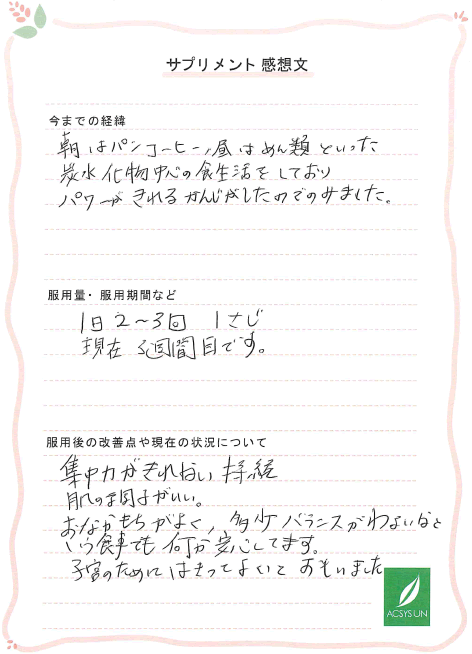 サプリメント 感想文
今までの経緯
朝はパンコーヒー、昼はめん類といった
炭水化物中心の食生活をしており
パワーがきれるかんじがしたのでのみました。
服用量・服用期間など
1日2〜3回 1さじ
現在 3週間目です。
服用後の改善点や現在の状況について
集中力がきれない 持続
肌の調子がいい。
おなかもちがよく、多少バランスがわるいなと
いう食事でも何か安心してます。
子宮のために はきってよいと おもいました
ACSYSIUN